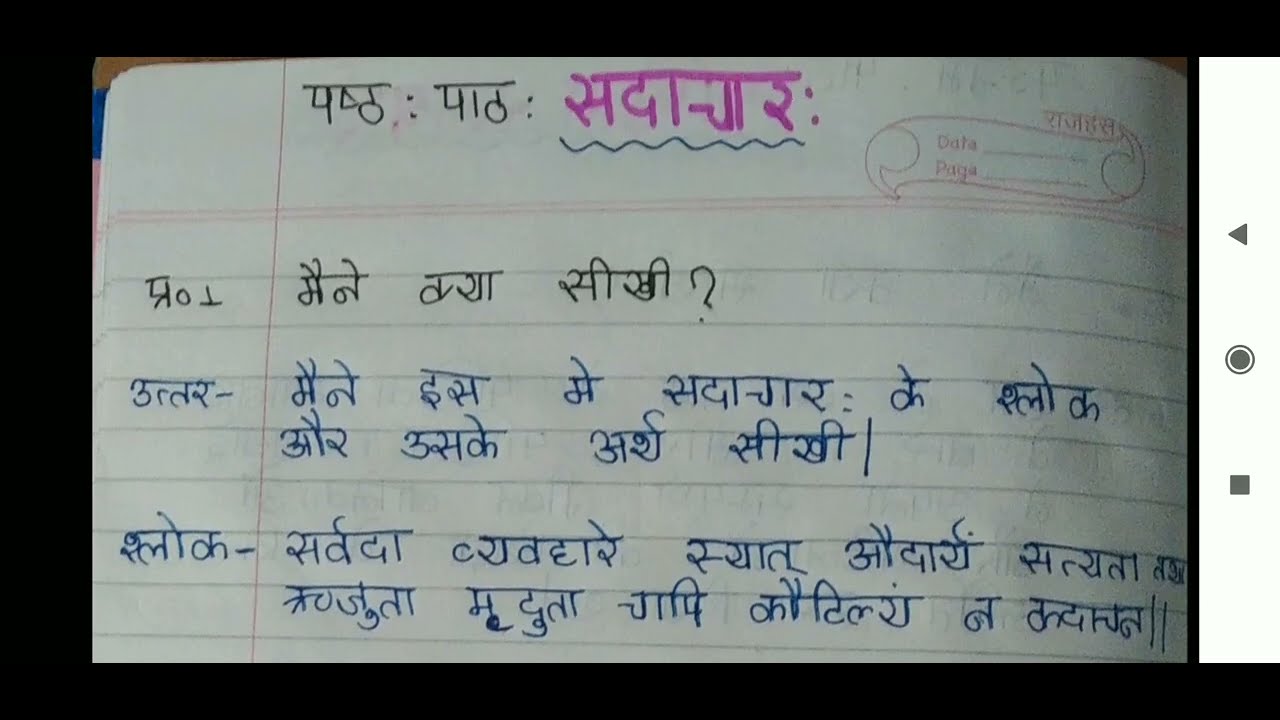 पष्ठ: पाठ: सदाचार:
राजहंस
Data
Page
प्र०1 मैने क्या सीखी?
उत्तर- मैने इस मे सदाचार: के श्लोक
और उसके अर्थ सीखी|
श्लोक- सर्वदा व्यवहारे स्यात् औदार्यं सत्यता तथा
ऋजुता मृदुता चापि कौटिल्यं न कदाचन||